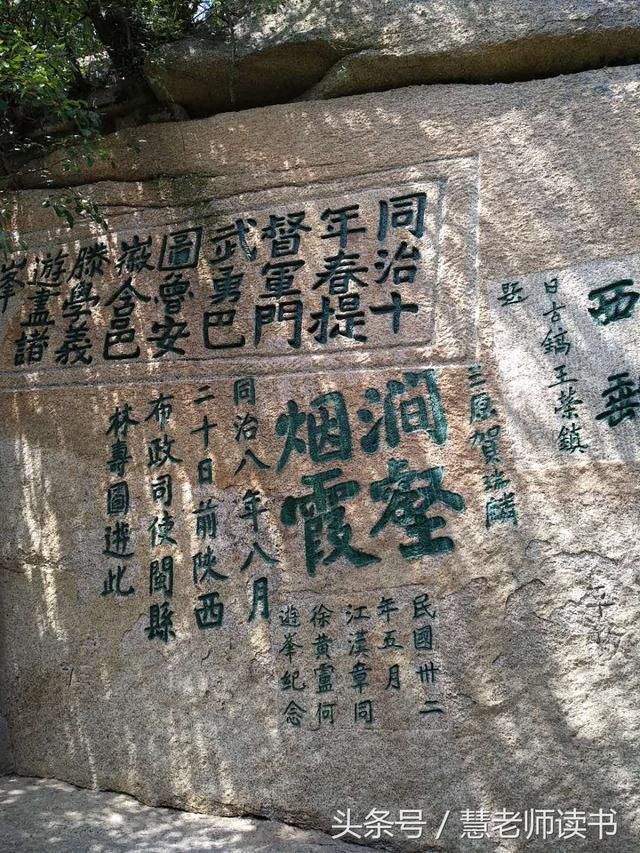 西
日古鎬王榮鎮
題
同治十
年春提
督軍門
武勇巴
圖魯安
徽合邑
滕學義
遊盡諸
峯
三原賀瑞麟
澗壑
烟霞
同治八年八月
二十日前陝西
布政司使閩縣
林壽圖遊此
民國卅二
年五月
江漢章同
徐黄盧何
遊峯紀念
头条号／慧老师读书